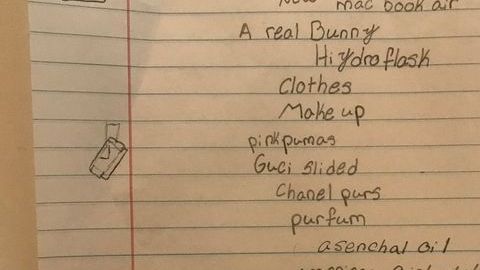 mac book air
A real Bunny
Hiydroflask
Clothes
Make up
pinkpumas
Guci slided
Chanel purs
purfum
asenchal oil